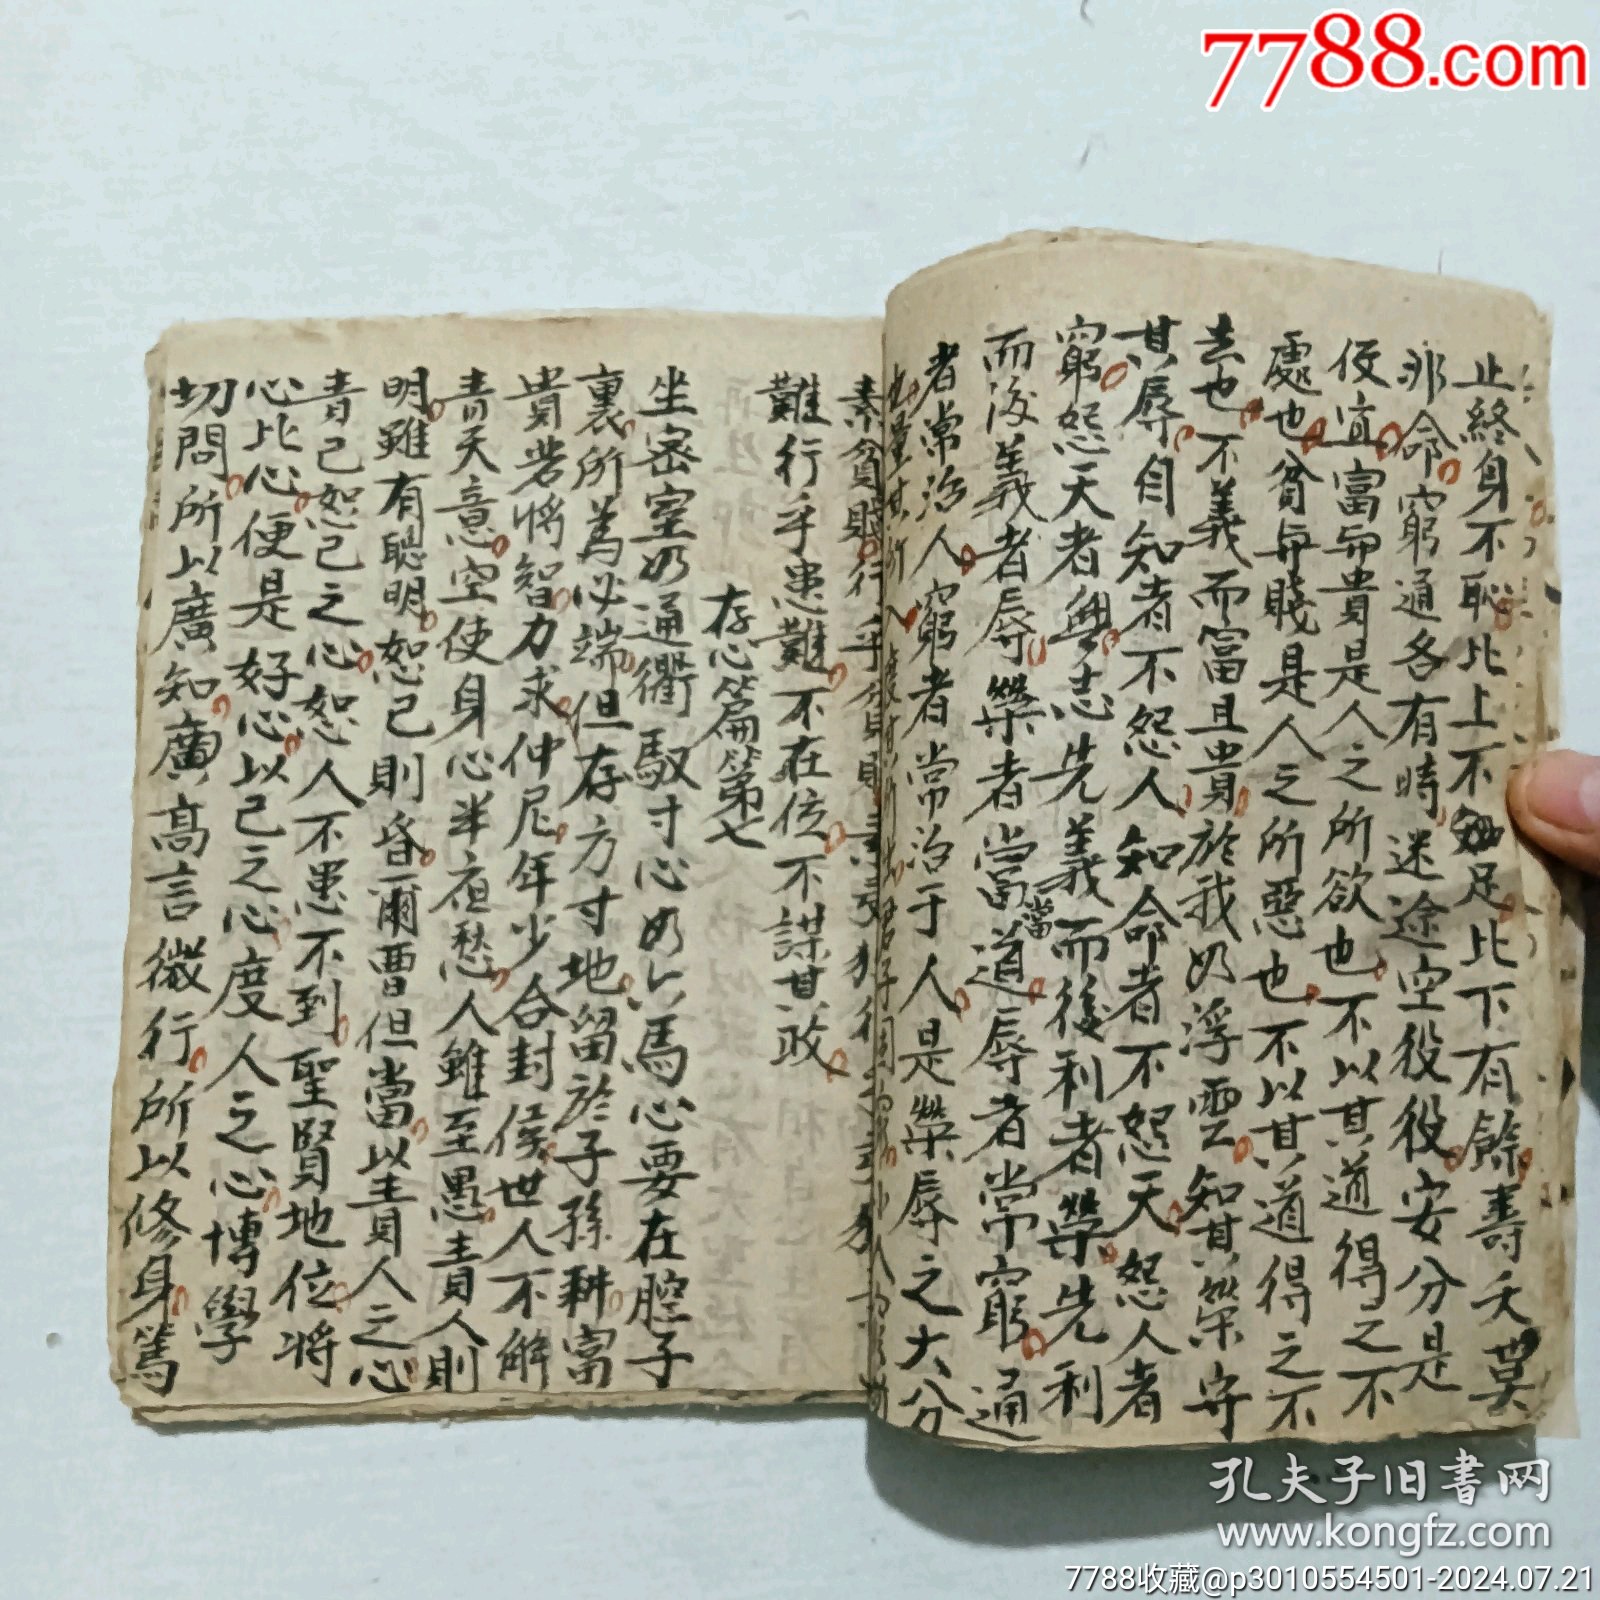 7788.com
止終身不恥比上不知足比下有餘壽夭莫
非命窮通各有時迷途空役役安分是
便宜富與貴是人之所欲也不以其道得之不
處也貧與賤是人之所惡也不以其道得之不
去也不義而富且貴於我如浮雲知其榮守
其辱自知者不怨人知命者不怨天怨人者
窮怨天者無志先義而後利者榮先利
而後義者辱榮者當道辱者常窮通
當
者常治人窮者常治于人是榮辱之大分
也量其所入度
素貧賤行乎貧賤
難行乎患難不在位不謀其政
存心篇第七
坐密室如通衢馭寸心如六馬心要在腔子
裏所為必端但存方寸地留於子孫耕富
貴若將智力求仲尼年少合封侯世人不解
青天意空使身心半夜愁人雖至愚責人則
明雖有聰明恕己則昏爾曹但當以責人之心
責己恕己之心恕人不患不到聖賢地位將
心比心便是好心以己之心度人之心博學
切問所以廣知廣高言微行所以修身篤
孔夫子旧书网
www.kongfz.com
7788收藏@p3010554501-2024.07.21